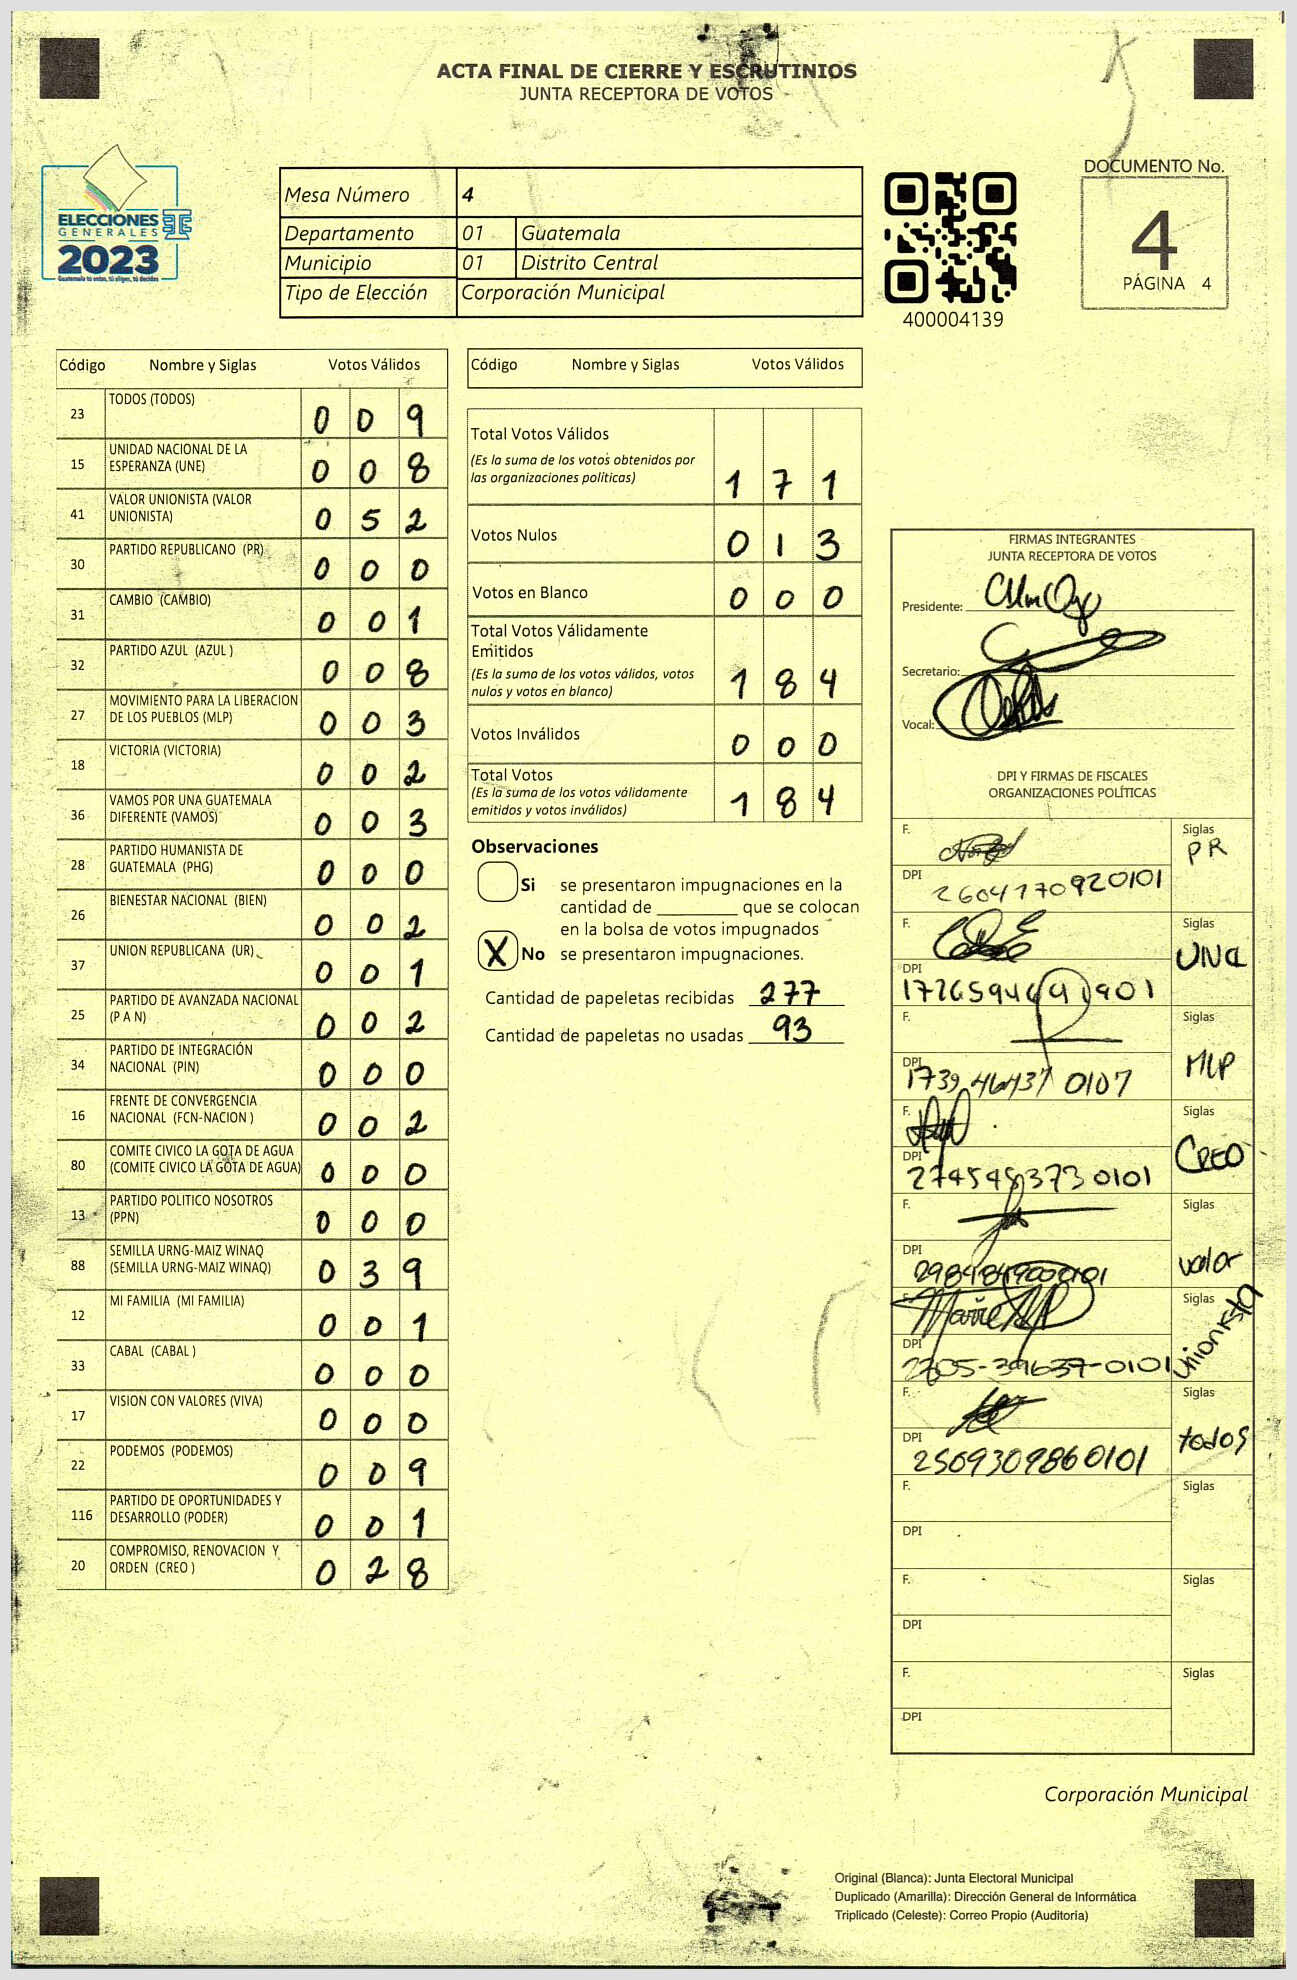 ACTA FINAL DE CIERRE Y ESCRUTINIOS
JUNTA RECEPTORA DE VOTOS
ELECCIONES
GENERALES
2023
Guatemala tú votas, tú eliges, tú decides
Mesa Número 4
Departamento 01 Guatemala
Municipio 01 Distrito Central
Tipo de Elección Corporación Municipal
400004139
DOCUMENTO No.
4
PÁGINA 4
Código Nombre y Siglas Votos Válidos
23 TODOS (TODOS) 0 0 9
15 UNIDAD NACIONAL DE LA
ESPERANZA (UNE) 0 0 8
41 VALOR UNIONISTA (VALOR
UNIONISTA) 0 5 2
30 PARTIDO REPUBLICANO (PR) 0 0 0
31 CAMBIO (CAMBIO) 0 0 1
32 PARTIDO AZUL (AZUL ) 0 0 8
27 MOVIMIENTO PARA LA LIBERACION
DE LOS PUEBLOS (MLP) 0 0 3
18 VICTORIA (VICTORIA) 0 0 2
36 VAMOS POR UNA GUATEMALA
DIFERENTE (VAMOS) 0 0 3
28 PARTIDO HUMANISTA DE
GUATEMALA (PHG) 0 0 0
26 BIENESTAR NACIONAL (BIEN) 0 0 2
37 UNION REPUBLICANA (UR) 0 0 1
25 PARTIDO DE AVANZADA NACIONAL
(P A N) 0 0 2
34 PARTIDO DE INTEGRACIÓN
NACIONAL (PIN) 0 0 0
16 FRENTE DE CONVERGENCIA
NACIONAL (FCN-NACION ) 0 0 2
80 COMITE CIVICO LA GOTA DE AGUA
(COMITE CIVICO LA GOTA DE AGUA) 0 0 0
13 PARTIDO POLITICO NOSOTROS
(PPN) 0 0 0
88 SEMILLA URNG-MAIZ WINAQ
(SEMILLA URNG-MAIZ WINAQ) 0 3 9
12 MI FAMILIA (MI FAMILIA) 0 0 1
33 CABAL (CABAL ) 0 0 0
17 VISION CON VALORES (VIVA) 0 0 0
22 PODEMOS (PODEMOS) 0 0 9
116 PARTIDO DE OPORTUNIDADES Y
DESARROLLO (PODER) 0 0 1
20 COMPROMISO, RENOVACION Y
ORDEN (CREO ) 0 2 8
Código Nombre y Siglas Votos Válidos
Total Votos Válidos
(Es la suma de los votos obtenidos por
las organizaciones políticas) 1 7 1
Votos Nulos 0 1 3
Votos en Blanco 0 0 0
Total Votos Válidamente
Emitidos
(Es la suma de los votos válidos, votos
nulos y votos en blanco) 1 8 4
Votos Inválidos 0 0 0
Total Votos
(Es la suma de los votos válidamente
emitidos y votos inválidos) 1 8 4
Observaciones
Si se presentaron impugnaciones en la
cantidad de ________ que se colocan
en la bolsa de votos impugnados
X No se presentaron impugnaciones.
Cantidad de papeletas recibidas 277
Cantidad de papeletas no usadas 93
FIRMAS INTEGRANTES
JUNTA RECEPTORA DE VOTOS
Presidente:
Secretario:
Vocal:
DPI Y FIRMAS DE FISCALES
ORGANIZACIONES POLÍTICAS
F. Siglas
PR
DPI 2604170920101
F. Siglas
UNE
DPI
F. Siglas
MLP
DPI 1739 46437 0107
F. Siglas
CREO
DPI
F. Siglas
valor
DPI
F. Siglas
unionista
DPI 2705-39637-0101
F. Siglas
todos
DPI 2509309860101
F. Siglas
DPI
F. Siglas
DPI
F. Siglas
DPI
Corporación Municipal
Original (Blanca): Junta Electoral Municipal
Duplicado (Amarilla): Dirección General de Informática
Triplicado (Celeste): Correo Propio (Auditoría)